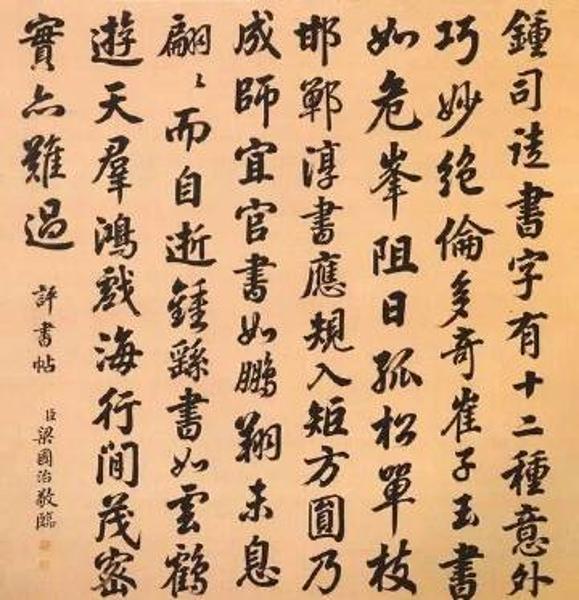 鍾司徒書字有十二種意外
巧妙絕倫多奇崔子玉書
如危峯阻日孤松單枝
邯鄲淳書應規入矩方圓乃
成師宜官書如鵬翔未息
翩〻而自逝鍾繇書如雲鶴
遊天羣鴻戲海行間茂密
實亦難過 評書帖 臣梁國治敬臨